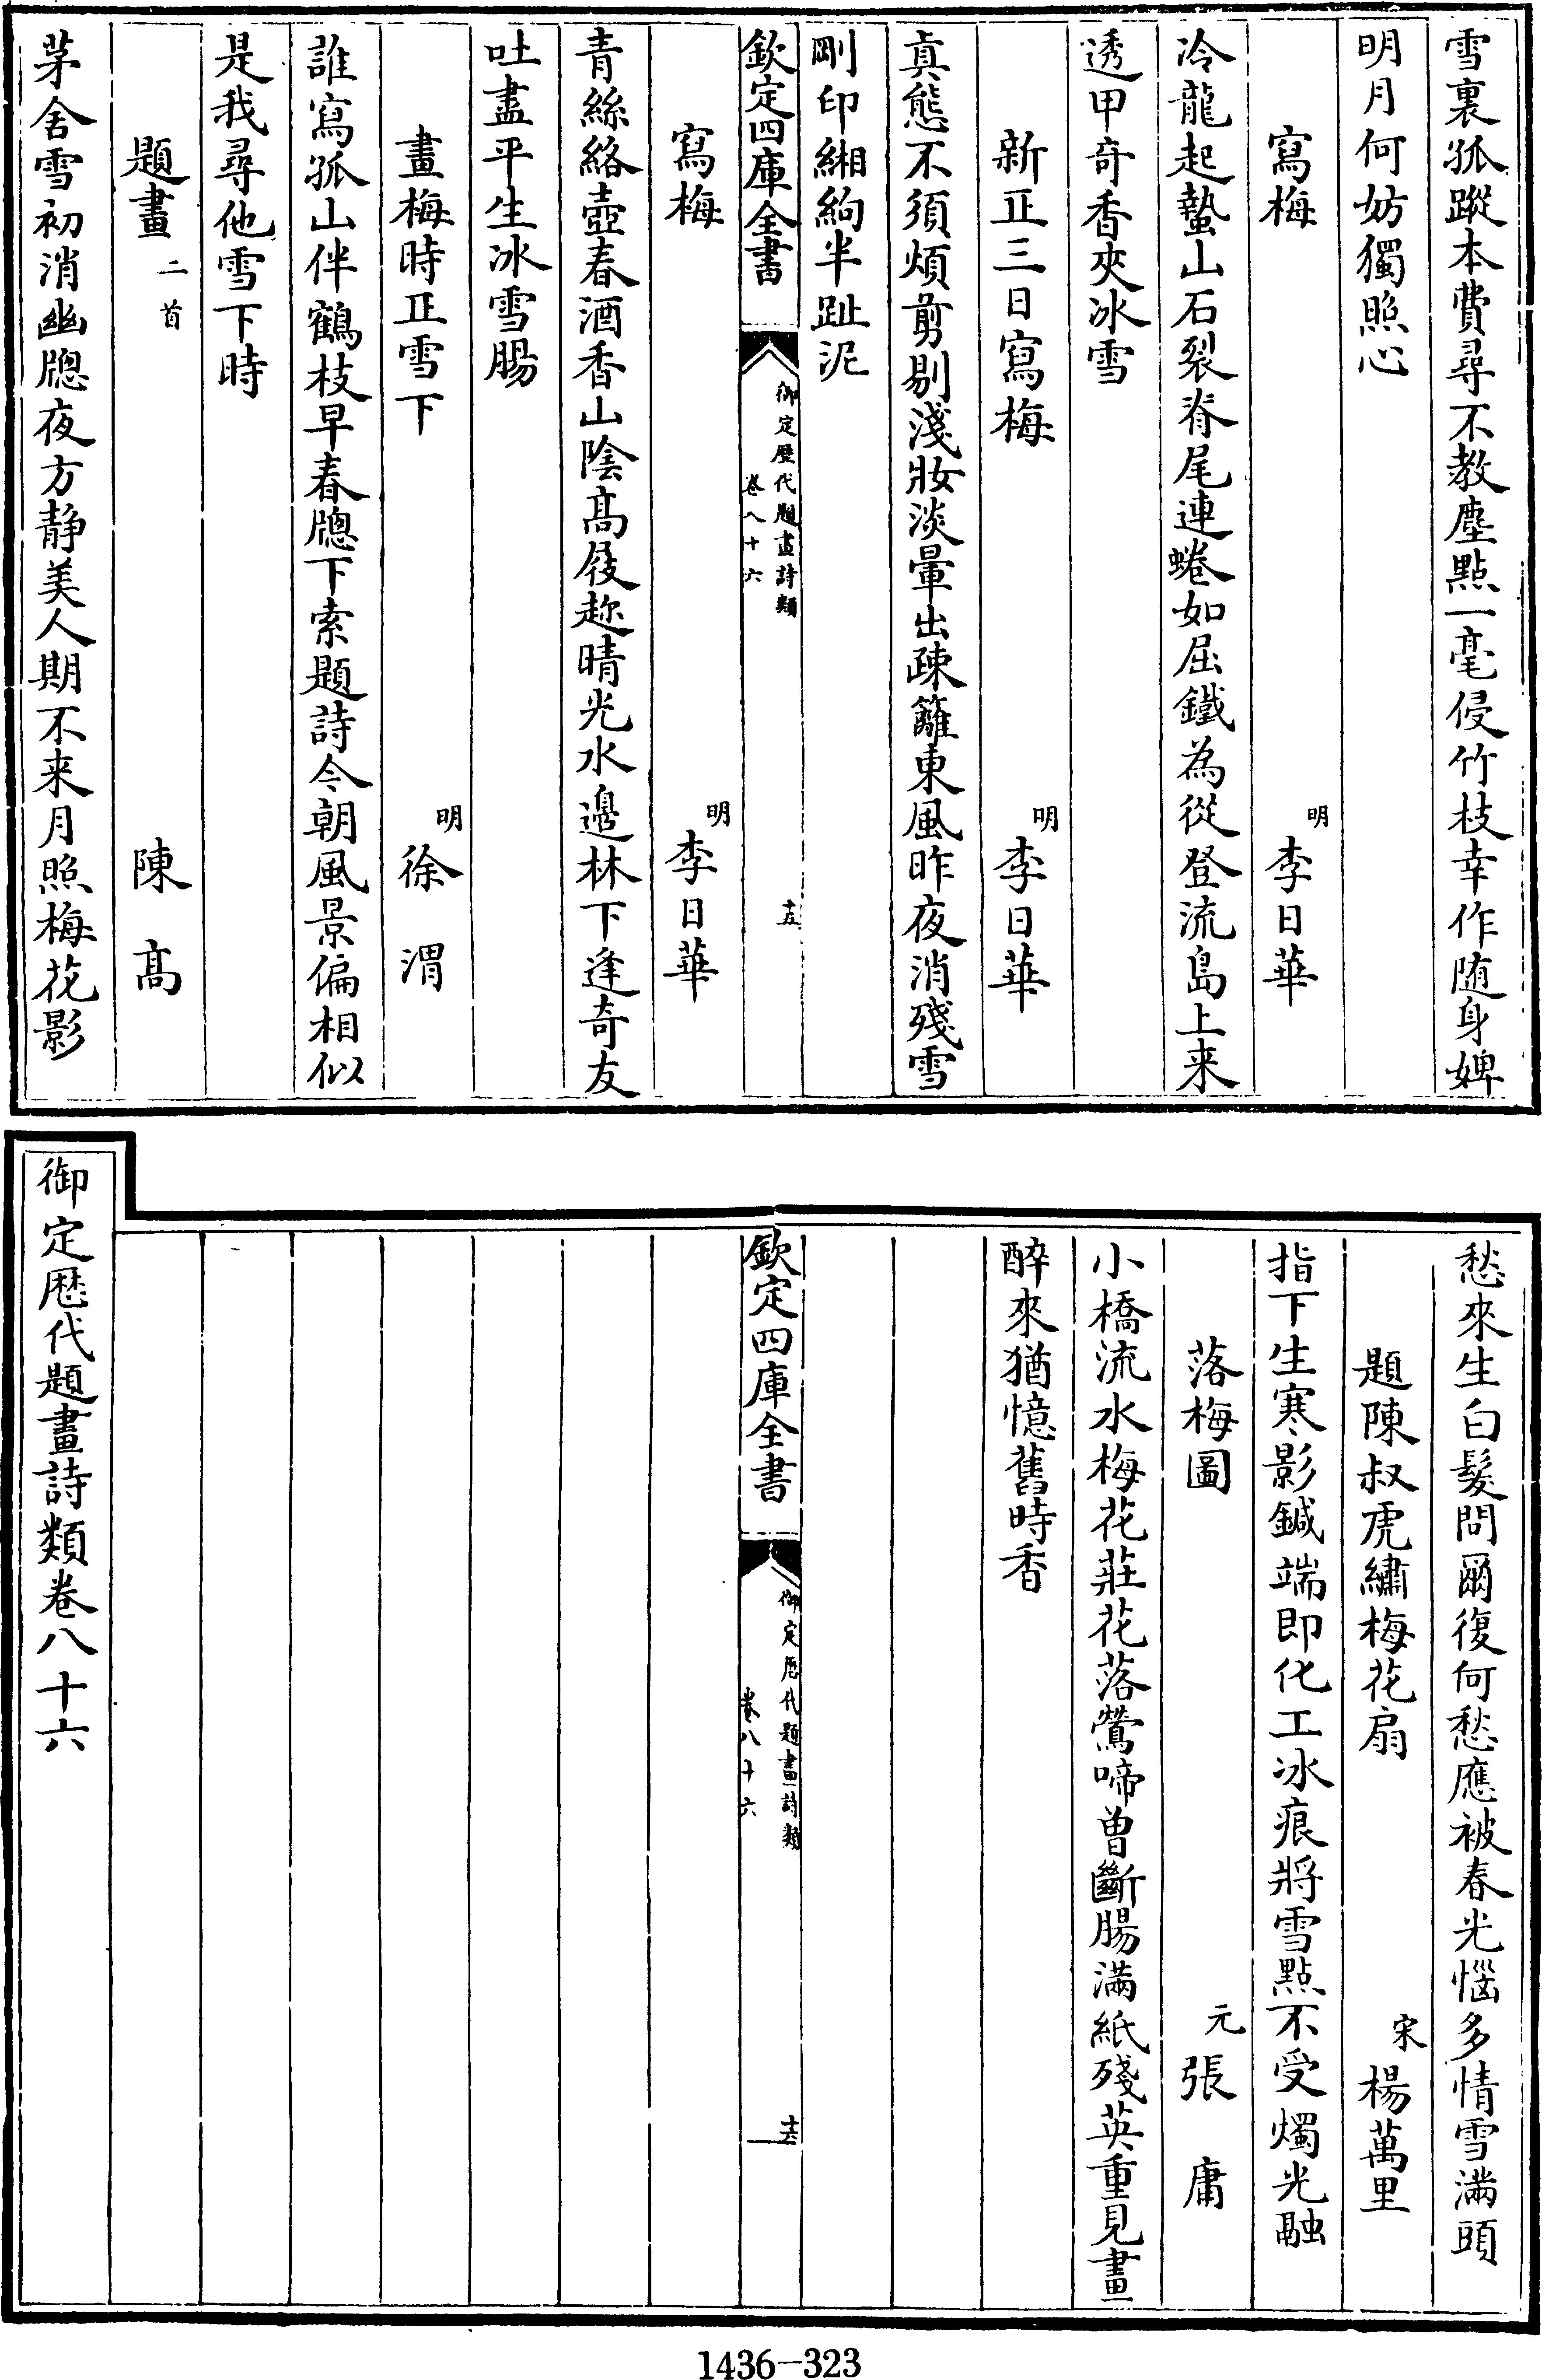 雪裏孤蹤本費尋不教塵點一毫侵竹枝幸作随身婢
明月何妨獨照心
寫梅　明　李日華
冷龍起蟄山石裂脊尾連蜷如屈鐵為從登流島上来
透甲奇香夾冰雪
新正三日寫梅　明　李日華
真態不須煩剪剔淺妝淡暈出疎籬東風昨夜消殘雪
剛印緗絇半趾泥
欽定四庫全書
御定歷代題畫詩類
卷八十六
十五
寫梅　明　李日華
青絲絡壺春酒香山陰高屐趂晴光水邊林下逢奇友
吐盡平生冰雪腸
畫梅時正雪下　明　徐渭
誰寫孤山伴鶴枝早春牕下索題詩今朝風景偏相似
是我尋他雪下時
題畫二首　陳高
茅舍雪初消幽牕夜方静美人期不来月照梅花影
愁來生白髮問爾復何愁應被春光惱多情雪滿頭
題陳叔虎繡梅花扇　宋　楊萬里
指下生寒影鍼端即化工冰痕將雪點不受燭光融
落梅圖　元　張庸
小橋流水梅花莊花落鶯啼曽斷腸滿紙殘英重見畫
醉來猶憶舊時香
欽定四庫全書
御定歷代題畫詩類
卷八十六
十六
御定歷代題畫詩類卷八十六
1436-323